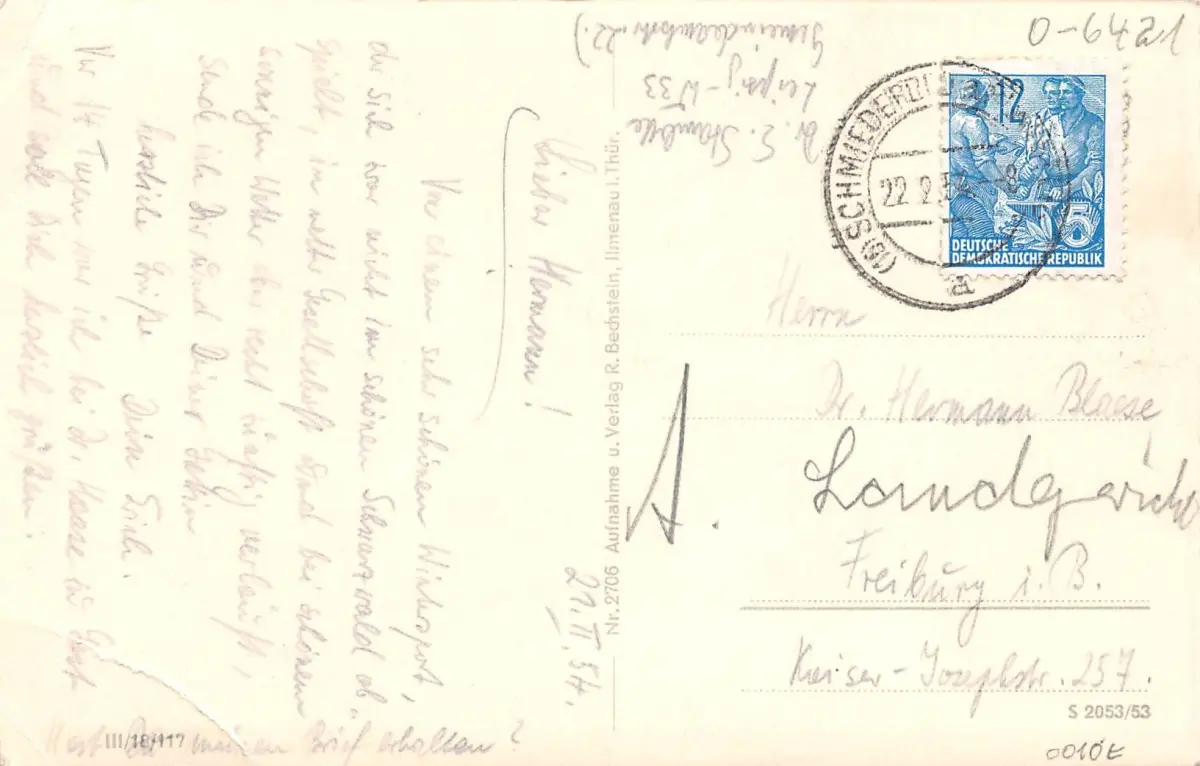 21.II.54.
Lieber Hermann!
Von einem sehr schönen Wintersport,
der sich zwar nicht im schönen Schwarzwald ab-
spielt, in netter Gesellschaft und bei schönem
sonnigen Wetter des recht kräftig verläuft,
sende ich Dir und Deiner Gattin
herzliche Grüße
Dein Erich.
Vor 14 Tagen war ich bei Dr. zu Gast
und soll Dich herzlich grüßen.
Hast Du meinen Brief erhalten?
III/18/117
Nr. 2706 Aufnahme u. Verlag R. Bechstein, Ilmenau i. Thür.
Dr. E.
Leipzig-W33
22.)
0-6421
(16) SCHMIEDEFELD
22.2.54.-8
a
12
5
DEUTSCHE
DEMOKRATISCHE REPUBLIK
Herrn
Dr. Hermann
A. Landgericht
Freiburg i. B.
Kaiser-Josephstr. 257.
S 2053/53
0010E